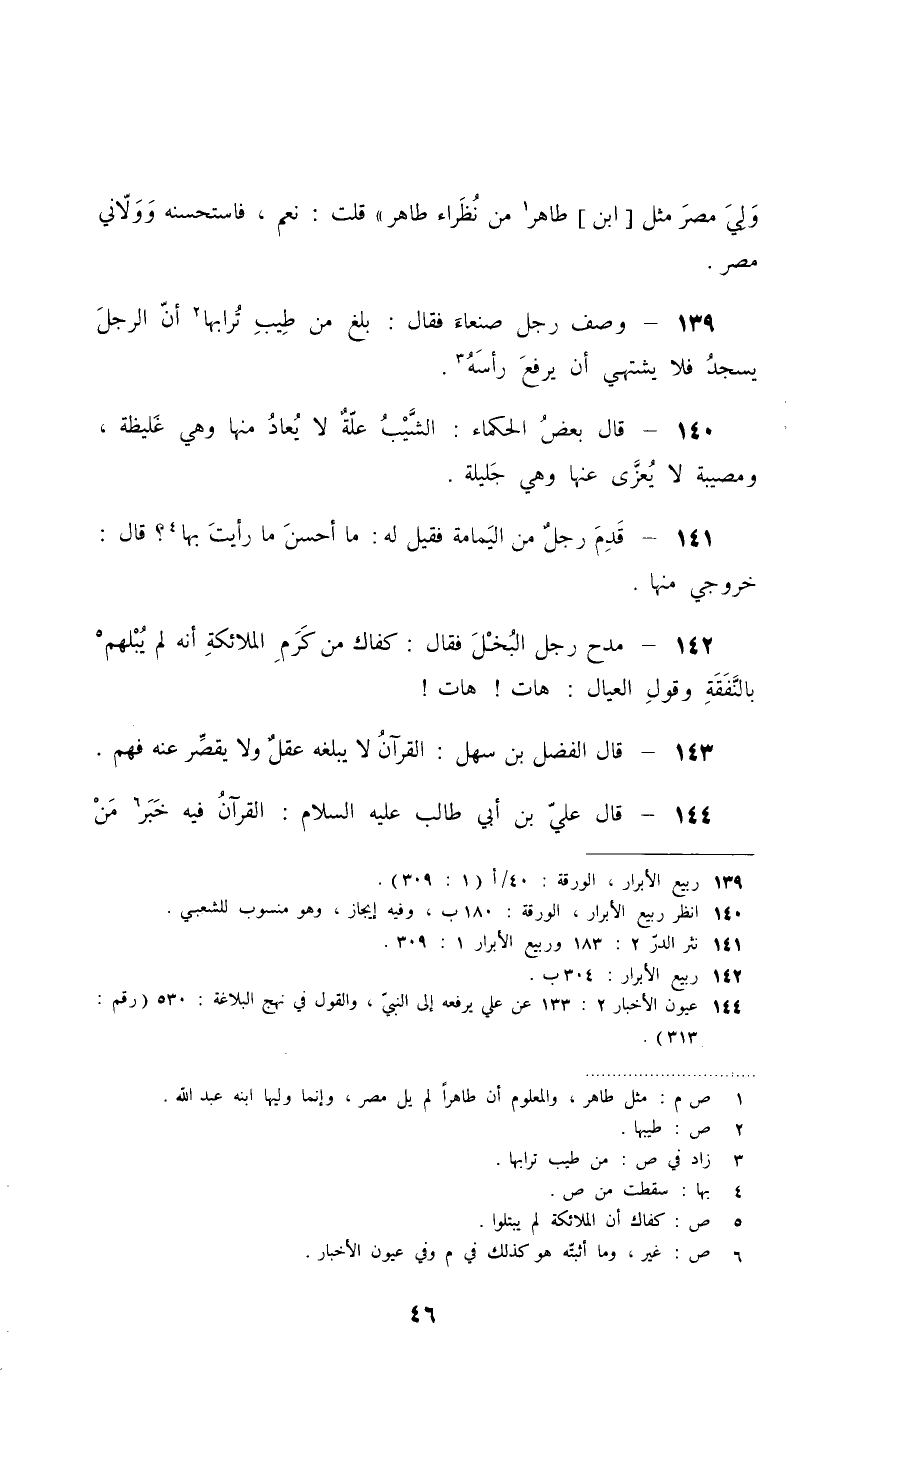 وَلِيَ مصرَ مثل [ ابن ] طاهر١ من نُظَراء طاهر» قلت : نعم ، فاستحسنه وَوَلّاني
مصر .
١٣٩ – وصف رجل صنعاءَ فقال : بلغ من طِيبِ تُرابها٢ أنّ الرجلَ
يسجدُ فلا يشتهي أن يرفعَ رأسَهُ٣ .
١٤٠ – قال بعضُ الحكماء : الشَّيْبُ علّةٌ لا يُعادُ منها وهي غَليظة ،
ومصيبة لا يُعزَّى عنها وهي جَليلة .
١٤١ – قَدِمَ رجلٌ من اليَمامة فقيل له : ما أحسنَ ما رأيتَ بها٤؟ قال :
خروجي منها .
١٤٢ – مدح رجل البُخلَ فقال : كفاك من كَرَمِ الملائكةِ أنه لم يُبْلهم٥
بالنَّفَقَةِ وقولِ العيال : هات ! هات !
١٤٣ – قال الفضل بن سهل : القرآنُ لا يبلغه عقلٌ ولا يقصِّر عنه فهم .
١٤٤ – قال عليّ بن أبي طالب عليه السلام : القرآنُ فيه خَبَر٦ مَنْ
١٣٩ ربيع الأبرار ، الورقة : ٤٠/أ (١ : ٣٠٩) .
١٤٠ انظر ربيع الأبرار ، الورقة : ١٨٠ب ، وفيه إيجاز ، وهو منسوب للشعبي .
١٤١ نثر الدرّ ٢ : ١٨٣ وربيع الأبرار ١ : ٣٠٩ .
١٤٢ ربيع الأبرار : ٣٠٤ب .
١٤٤ عيون الأخبار ٢ : ١٣٣ عن علي يرفعه إلى النبيّ ، والقول في نهج البلاغة : ٥٣٠ (رقم :
٣١٣) .
١ ص م : مثل طاهر ، والمعلوم أن طاهراً لم يل مصر ، وإنما وليها ابنه عبد الله .
٢ ص : طيبها .
٣ زاد في ص : من طيب ترابها .
٤ بها : سقطت من ص .
٥ ص : كفاك أن الملائكة لم يبتلوا .
٦ ص : غير ، وما أثبتّه هو كذلك في م وفي عيون الأخبار .
٤٦